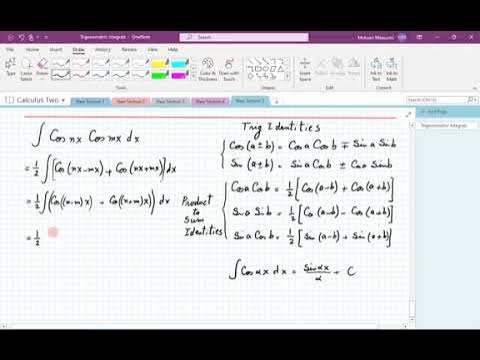 Trigonometric Integrals - OneNote
File Home Insert Draw View Help
Type Lasso Select Insert Space Eraser
Color & Thickness Shapes Ink to Shape Ink to Text Ink to Math
Calculus Two New Section 1 New Section 2 New Section 3 New Section 4 New Section 5
Add Page
Trigonometric Integrals
∫ Cos nx Cos mx dx
= 1/2 ∫ [Cos (nx-mx) + Cos (nx+mx)] dx
= 1/2 ∫ (Cos((n-m)x) + Cos((n+m)x)) dx
= 1/2
Trig Identities
Cos (a ± b) = Cos a Cos b ∓ Sin a Sin b
Sin (a ± b) = Sin a Cos b ± Cos a Sin b
Product to Sum Identities
Cos a Cos b = 1/2 [Cos (a-b) + Cos (a+b)]
Sin a Sin b = 1/2 [Cos (a-b) - Cos (a+b)]
Sin a Cos b = 1/2 [Sin (a-b) + Sin (a+b)]
∫ Cos αx dx = Sin αx / α + C